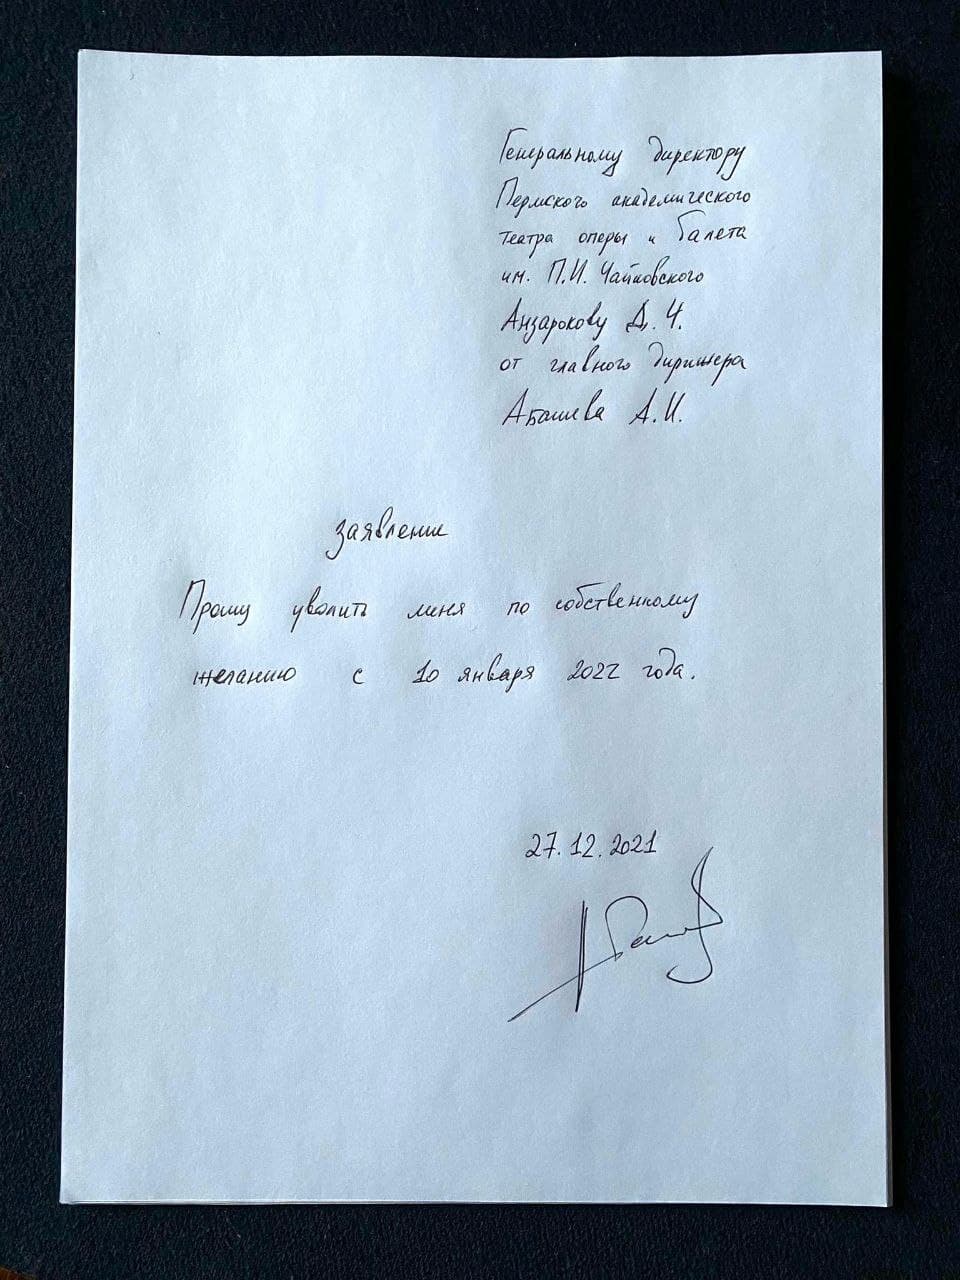 Генеральному директору
Пермского академического
театра оперы и балета
им. П.И. Чайковского
Анзарокову Д. Ч.
от главного дирижера
Абашева А.И.
заявление
Прошу уволить меня по собственному
желанию с 10 января 2022 года.
27.12.2021